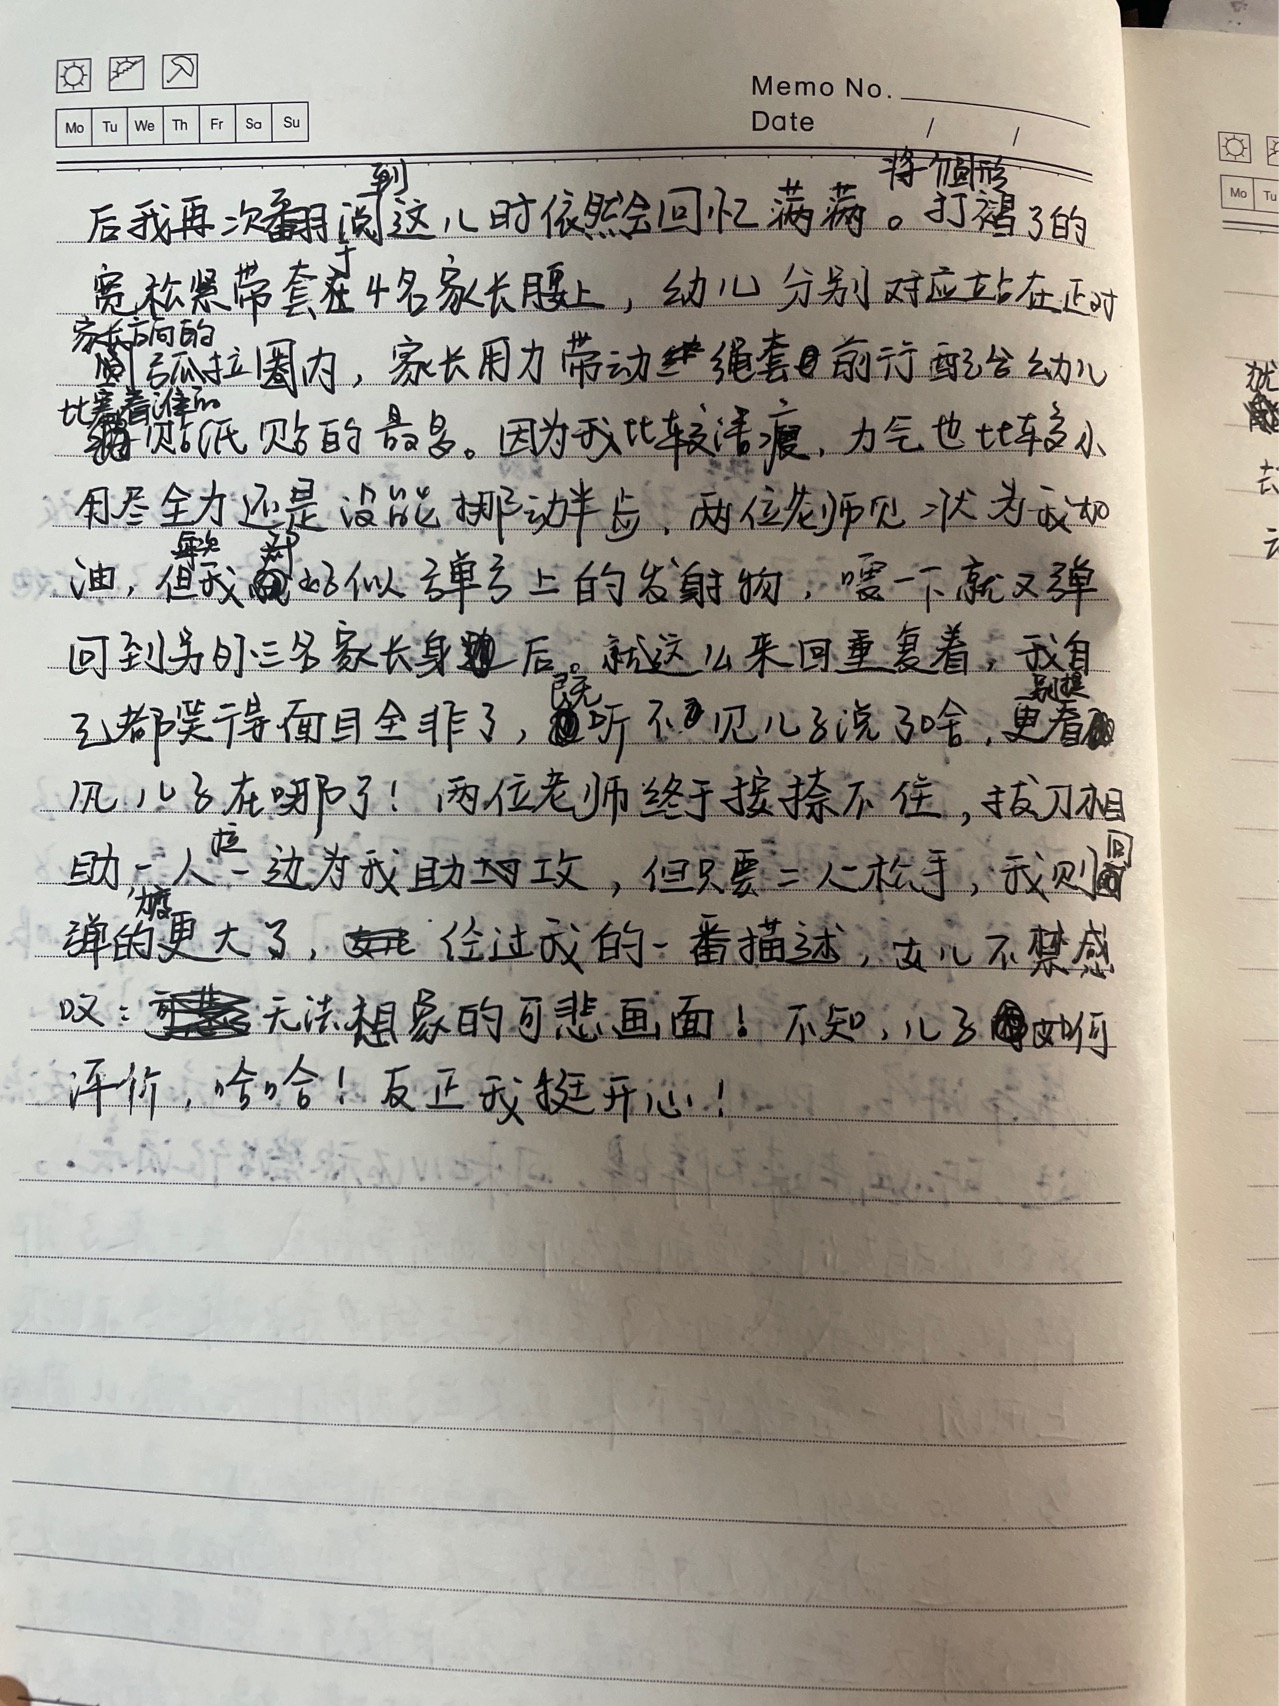 Memo No.
Mo Tu We Th Fr Sa Su
Date / /
到 将个圆形
后我再次翻阅这儿时依然会回忆满满。打褶了的
宽松紧带套在于4名家长腰上，幼儿分别对应站在正对
家长方向的
呼啦圈内，家长用力带动绳套前行配合幼儿
比赛看谁的
贴纸贴的最多。因为我比较清瘦，力气也比较小
用尽全力还是没能挪动半步，两位老师见状为我加
每次 都
油，但我好似弹弓上的发射物，嗖一下就又弹
回到另外三名家长身后。就这么来回重复着，我自
既无 别提
己都笑得面目全非了，听不见儿子说了啥，更看
见儿子在哪了！两位老师终于按捺不住，拔刀相
拉 回
助一人一边为我助攻，但只要二人松手，我则
弹的更大了，经过我的一番描述，女儿不禁感
叹：无法想象的可悲画面！不知，儿子如何
评价，哈哈！反正我挺开心！
Mo Tu